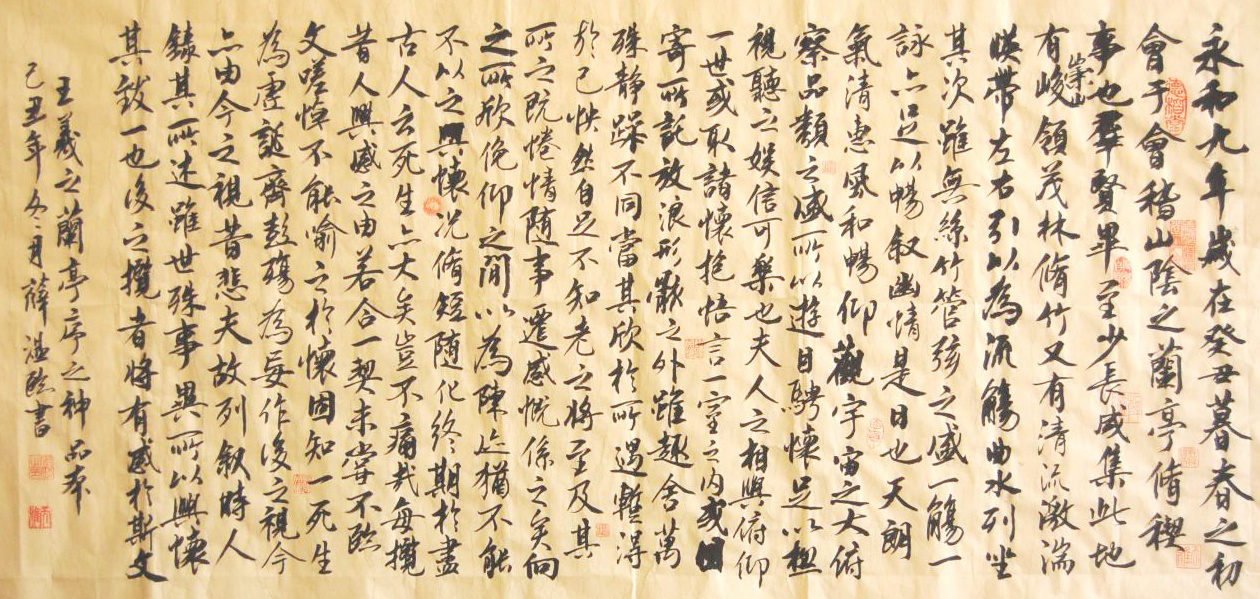 永和九年歲在癸丑暮春之初
會于會稽山陰之蘭亭脩稧
事也羣賢畢至少長咸集此地
有崇山峻領茂林脩竹又有清流激湍
暎帶左右引以為流觴曲水列坐
其次雖無絲竹管弦之盛一觴一
詠亦足以暢敘幽情是日也天朗
氣清惠風和暢仰觀宇宙之大俯
察品類之盛所以遊目騁懷足以極
視聽之娛信可樂也夫人之相與俯仰
一世或取諸懷抱悟言一室之內或因
寄所託放浪形骸之外雖趣舍萬
殊靜躁不同當其欣於所遇蹔得
於己怏然自足不知老之將至及其
所之既惓情隨事遷感慨係之矣向
之所欣俛仰之閒以為陳迹猶不能
不以之興懷況脩短隨化終期於盡
古人云死生亦大矣豈不痛哉每攬
昔人興感之由若合一契未嘗不臨
文嗟悼不能喻之於懷固知一死生
為虛誕齊彭殤為妄作後之視今
亦由今之視昔悲夫故列敘時人
錄其所述雖世殊事異所以興懷
其致一也後之攬者將有感於斯文
王羲之蘭亭序之神品本
己丑年冬月薛溫臨書